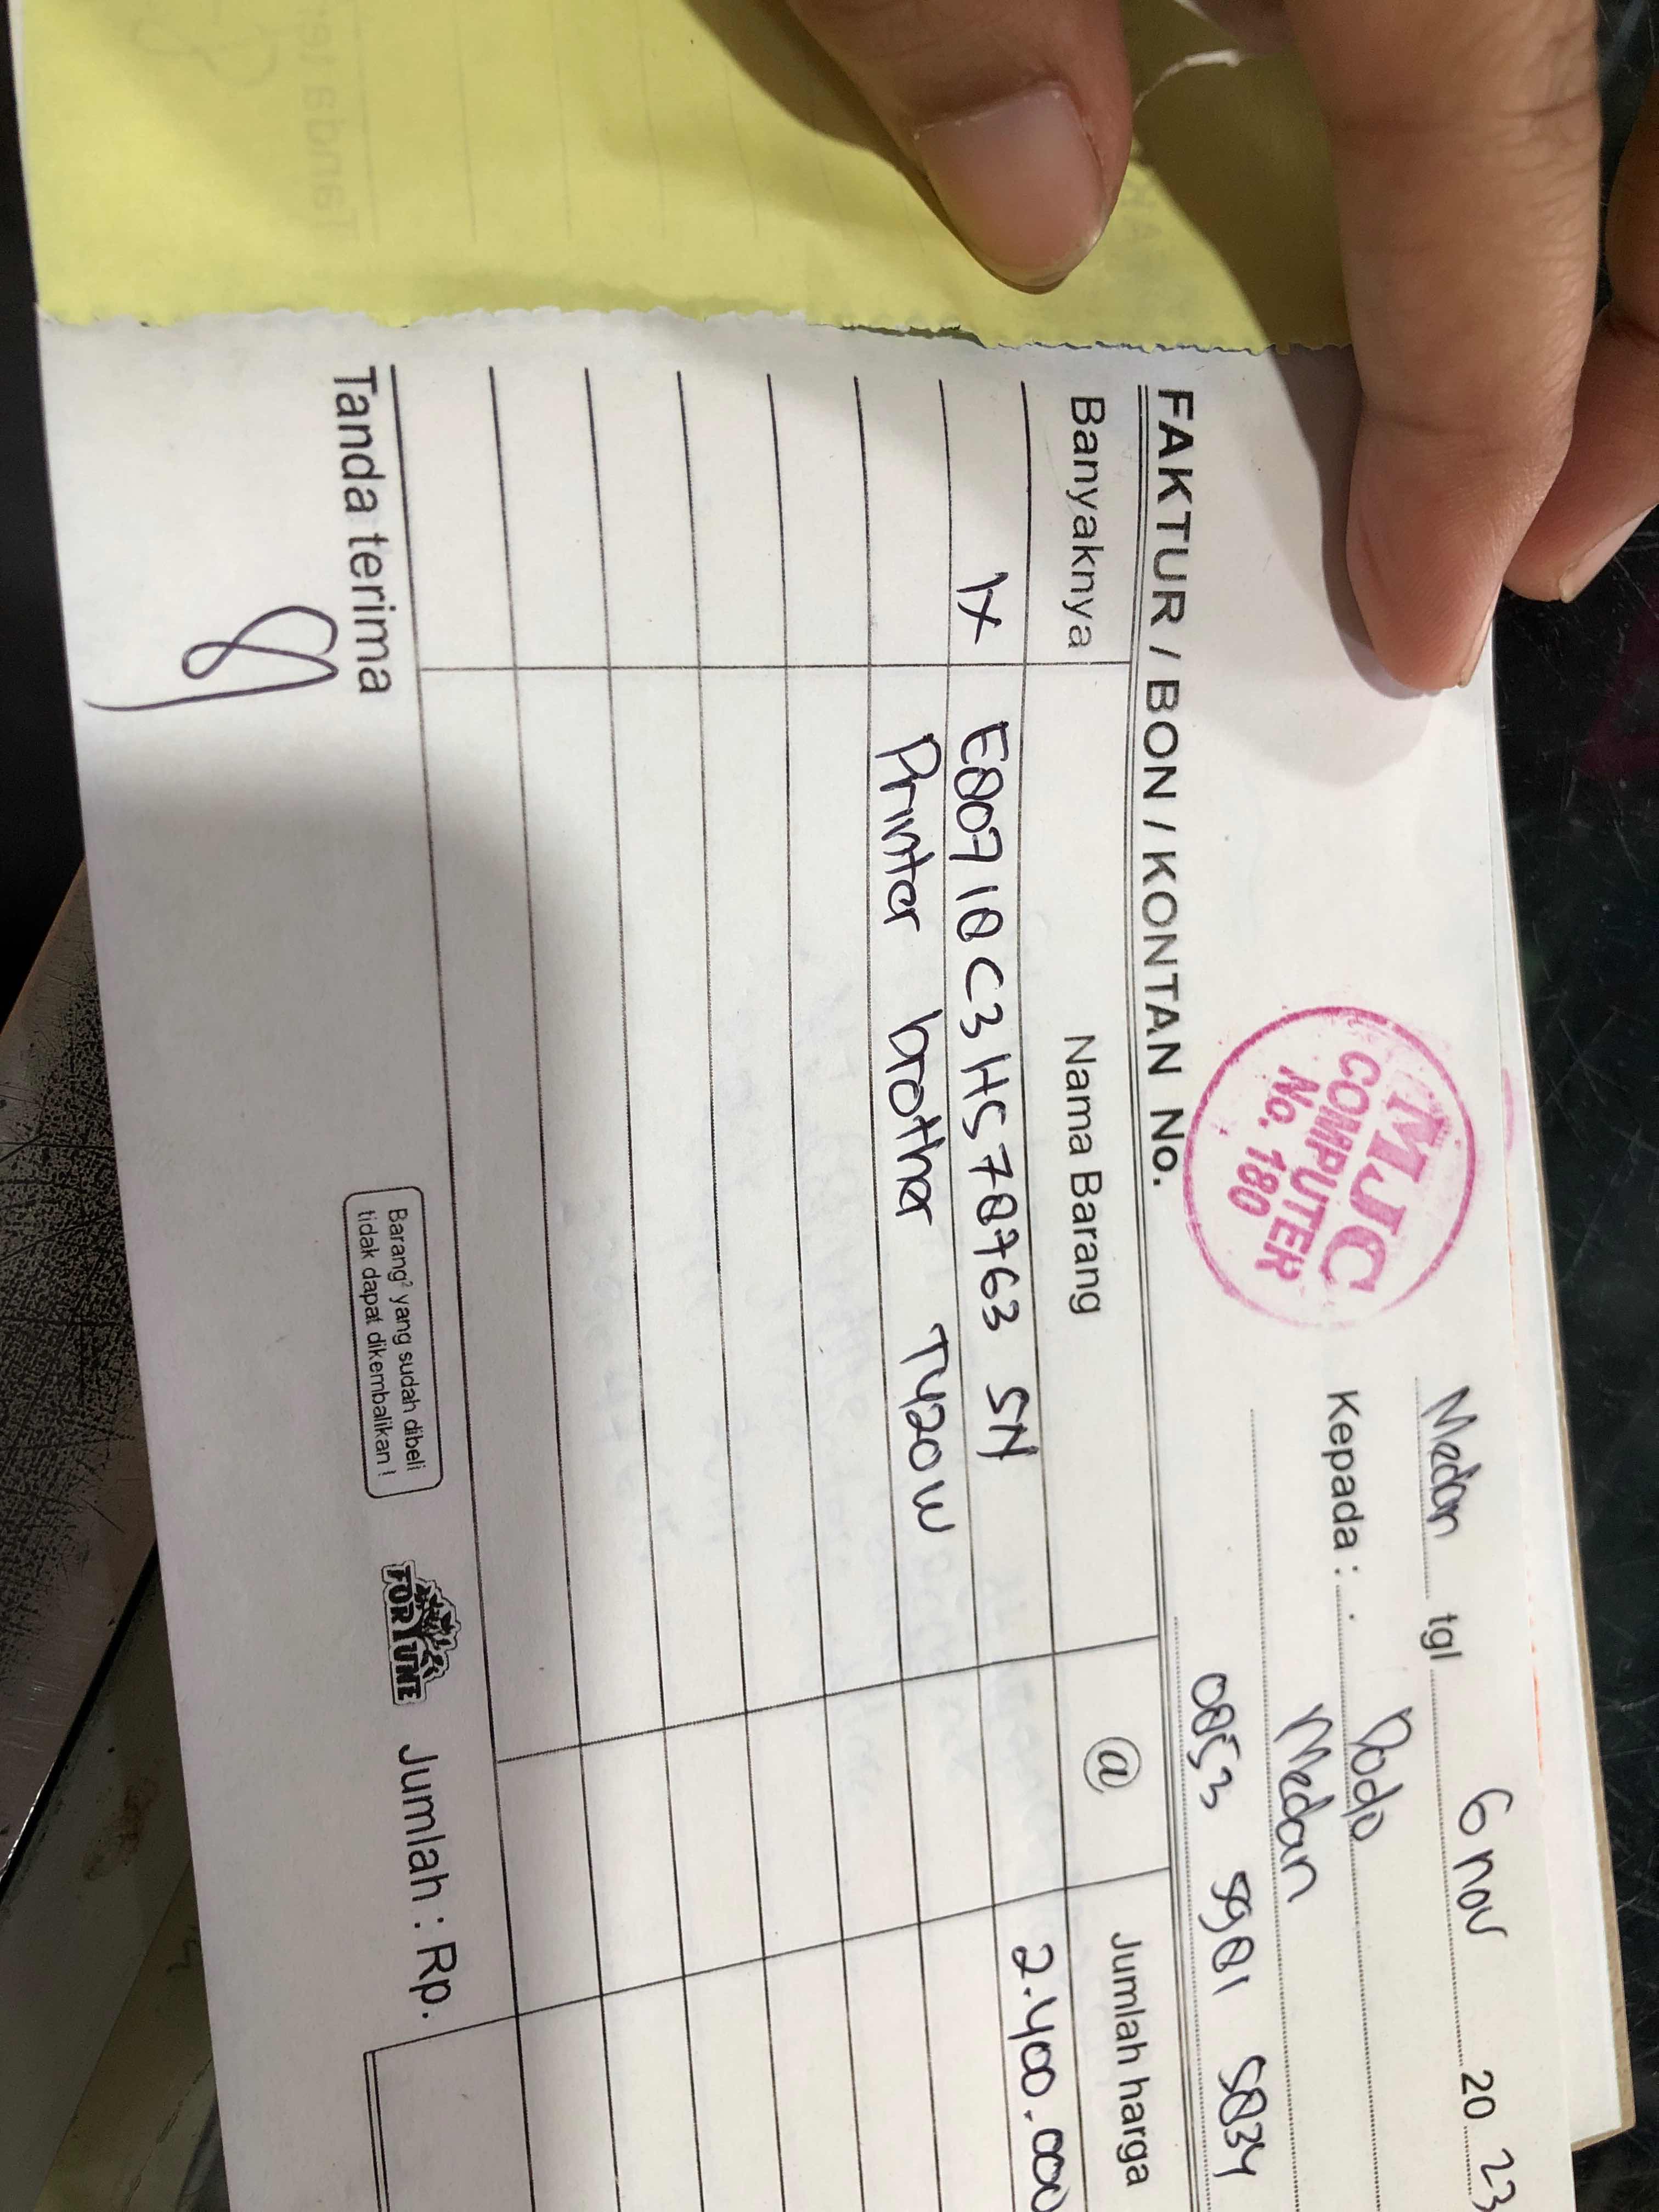 MJC
COMPUTER
No. 180
Medan tgl 6 nov 20 23
Kepada : Dodo
Medan
0853 5981 5834
FAKTUR / BON / KONTAN No.
Banyaknya Nama Barang @ Jumlah harga
1x E80710C3H578763 SN 2.400.000
Printer brother T420W
Tanda terima
Barang² yang sudah dibeli
tidak dapat dikembalikan !
FORTUNE
Jumlah : Rp.